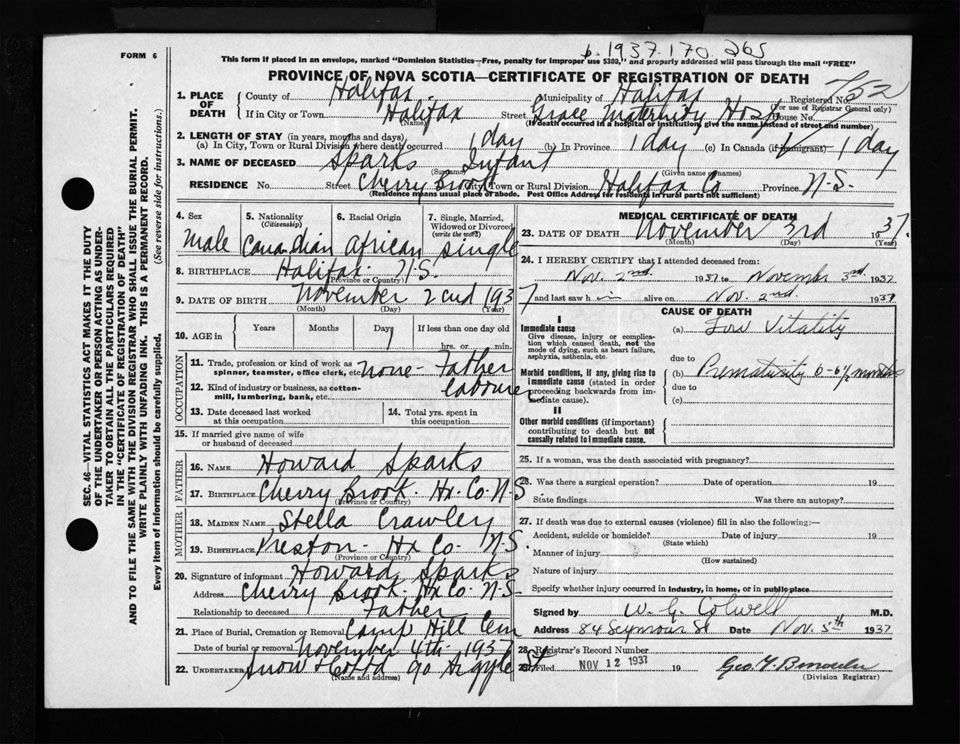 b. 1937. 170. 265
FORM 6
This form if placed in an envelope, marked "Dominion Statistics—Free, penalty for improper use $300," and properly addressed will pass through the mail "FREE"
PROVINCE OF NOVA SCOTIA—CERTIFICATE OF REGISTRATION OF DEATH
1. PLACE OF DEATH
County of Halifax Municipality of Halifax Registered No.
(For use of Registrar General only)
If in City or Town Halifax Street Grace Maternity Hosp House No.
(Name) (If death occurred in a hospital or institution, give the name instead of street and number)
2. LENGTH OF STAY (in years, months and days),
(a) In City, Town or Rural Division where death occurred 1 day (b) In Province 1 day (c) In Canada (if immigrant) 1 day
3. NAME OF DECEASED Sparks Infant
(Surname) (Given name or names)
RESIDENCE No. Street Cherry Brook City, Town or Rural Division Halifax Co Province N.S.
(Residence means usual place of abode. Post Office Address for Residents in rural parts not sufficient)
4. Sex male
5. Nationality (Citizenship) Canadian
6. Racial Origin African
7. Single, Married, Widowed or Divorced (write the word) Single
8. BIRTHPLACE Halifax. N.S.
(Province or Country)
9. DATE OF BIRTH November 2cnd 1937
(Month) (Day) (Year)
10. AGE in Years Months Days If less than one day old
hrs. or min.
OCCUPATION
11. Trade, profession or kind of work as spinner, teamster, office clerk, etc. None - Father
12. Kind of industry or business, as cotton-mill, lumbering, bank, etc. labourer
13. Date deceased last worked at this occupation
14. Total yrs. spent in this occupation
15. If married give name of wife or husband of deceased
FATHER
16. NAME Howard Sparks
17. BIRTHPLACE Cherry Brook. Hx. Co. N.S.
(Province or Country)
MOTHER
18. MAIDEN NAME Stella Crawley
19. BIRTHPLACE Preston - Hx Co. N.S.
(Province or Country)
20. Signature of informant Howard Sparks
Address Cherry Brook. Hx. Co. N.S.
Relationship to deceased Father
21. Place of Burial, Cremation or Removal Camp Hill Cem
Date of burial or removal November 4th 1937
22. UNDERTAKER Snow & Co Ltd 90 Argyle St
(Name and address)
MEDICAL CERTIFICATE OF DEATH
23. DATE OF DEATH November 3rd 1937.
(Month) (Day) (Year)
24. I HEREBY CERTIFY that I attended deceased from:
Nov. 2nd. 1937 to November 3rd 1937
and last saw him alive on Nov. 2nd. 1937
CAUSE OF DEATH
I
Immediate cause
Give disease, injury or complication which caused death, not the mode of dying, such as heart failure, asphyxia, asthenia, etc.
(a) Low Vitality
due to
Morbid conditions, if any, giving rise to immediate cause (stated in order proceeding backwards from immediate cause).
(b) Prematurity 6-6½ months
due to
(c)
II
Other morbid conditions (if important) contributing to death but not causally related to immediate cause.
25. If a woman, was the death associated with pregnancy?
26. Was there a surgical operation? Date of operation 19
State findings Was there an autopsy?
27. If death was due to external causes (violence) fill in also the following:—
Accident, suicide or homicide? Date of injury 19
(State which)
Manner of injury
(How sustained)
Nature of injury
Specify whether injury occurred in industry, in home, or in public place
Signed by W. G. Colwell M.D.
Address 84 Seymour St Date Nov. 5th 1937
28. Registrar's Record Number
29. Filed NOV 12 1937 19
(Division Registrar)
SEC. 46—VITAL STATISTICS ACT MAKES IT THE DUTY
OF THE UNDERTAKER OR PERSON ACTING AS UNDER-
TAKER TO OBTAIN ALL THE PARTICULARS REQUIRED
IN THE "CERTIFICATE OF REGISTRATION OF DEATH"
AND TO FILE THE SAME WITH THE DIVISION REGISTRAR WHO SHALL ISSUE THE BURIAL PERMIT.
WRITE PLAINLY WITH UNFADING INK. THIS IS A PERMANENT RECORD.
Every item of information should be carefully supplied. (See reverse side for instructions.)